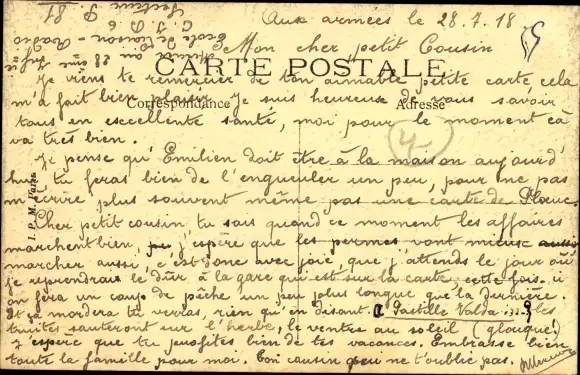 Aux armées le 28.7.18
Mon cher petit Cousin
CARTE POSTALE
Je viens te remercier de ton aimable petite carte, cela
m'a fait bien plaisir. Je suis heureux de vous savoir
Correspondance
Adresse
tous en excellente santé, moi pour le moment çà
va très bien.
4
Je pense qu'Emilien doit être à la maison aujourd'
hui, tu feras bien de l'engueuler un peu, pour ne pas
m'écrire plus souvent même pas une carte de
Cher petit cousin tu sais quand ce moment les affaires
marchent bien, j'espère que les permes vont mieux aussi
marcher aussi, c'est donc avec joie, que j'attends le jour où
je reprendrai le dur à la gare qui est sur la carte, cette fois-ci
on fera un coup de pêche un peu plus longue que la dernière.
Et ça mordra tu verras, rien qu'en disant. a Pastille Valda ... les
truites sauteront sur l'herbe, le ventre au soleil (glouque!)
J'espère que tu profites bien de tes vacances. Embrasse bien
toute la famille pour moi. Ton cousin qui ne t'oublie pas.
I. P. M. Paris
Ecole de liaison - Radio
28ème
Secteur P. 81